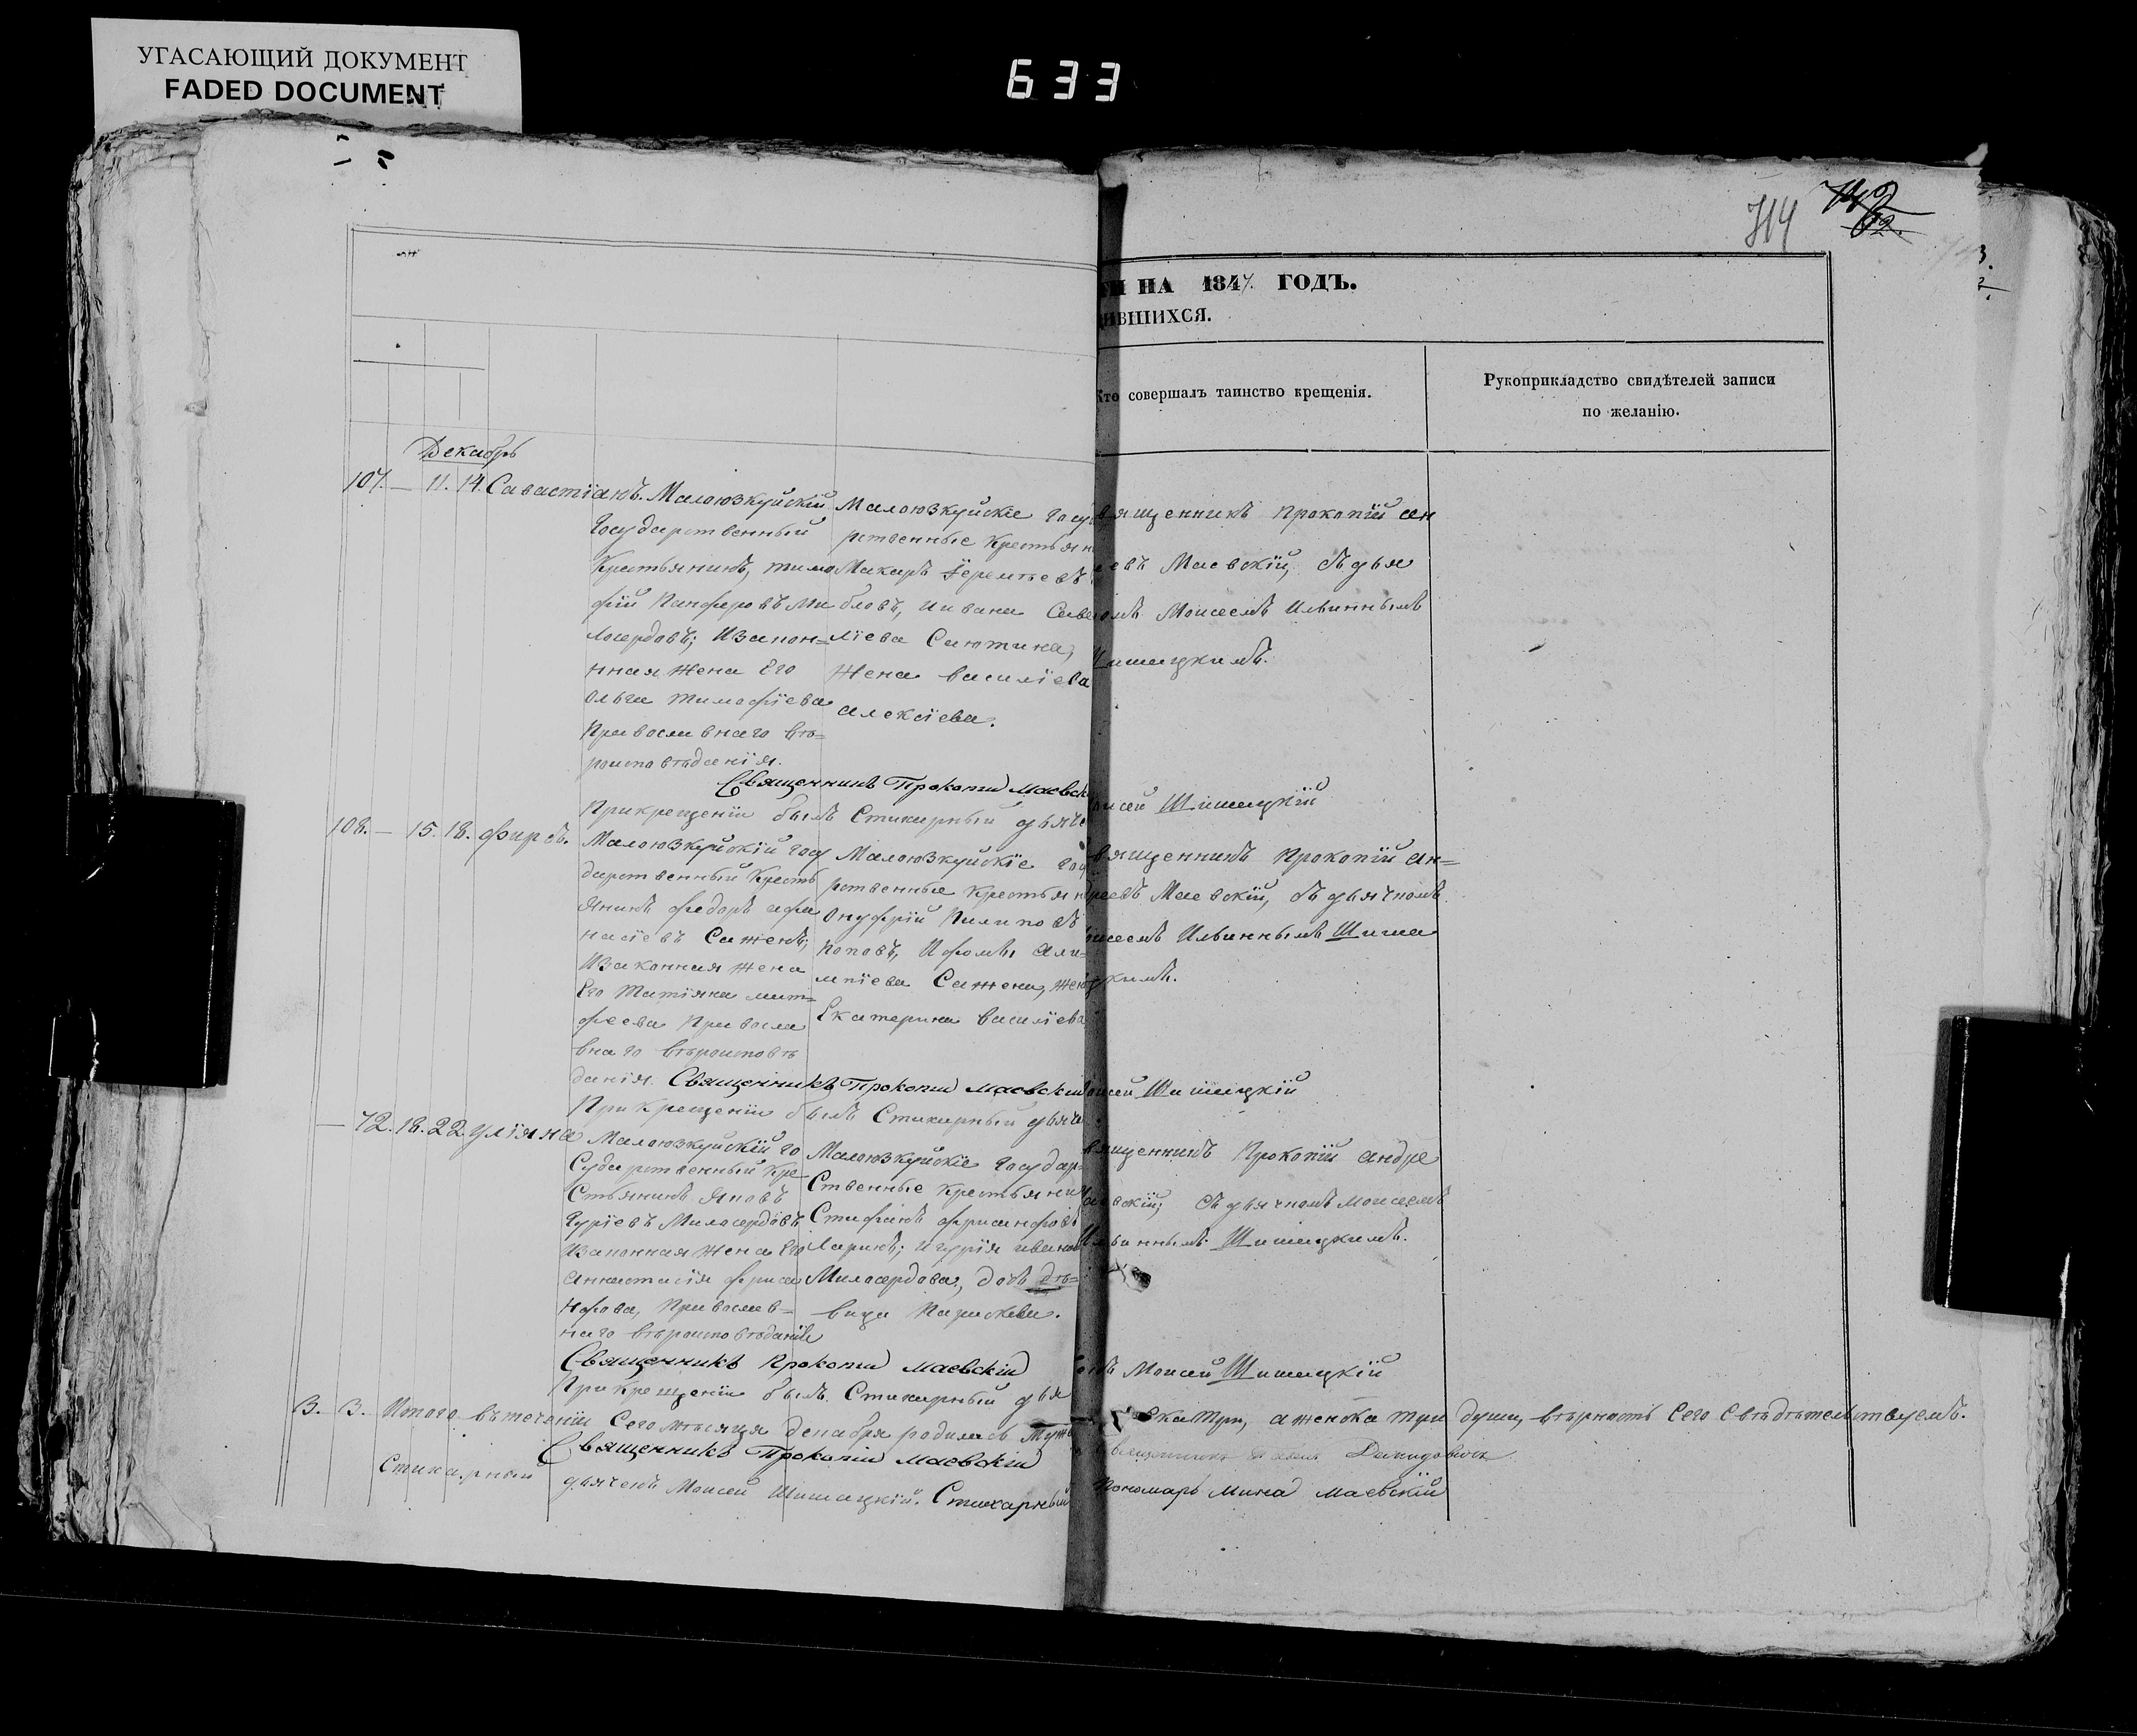 УГАСАЮЩИЙ ДОКУМЕНТ
FADED DOCUMENT
633
714
НА 1847 ГОДЪ.
ИВШИХСЯ.
Кто совершалъ таинство крещенія.
Рукоприкладство свидѣтелей записи
по желанію.
Декабрь
107. — 11. 14. Савастіанъ.
Малоюзкуйскій
Государственный
Крестьянинъ, тимо
фій Панферовъ Ми
лосердовъ; Изакон=
нная жена Его
Ольга тимофіева
Православнаго вѣ=
роисповѣданія.
Малоюзкуйскіе Госу
рственные Крестьян
Макаръ Еремѣевъ
бловъ, иивана Саве
ліева Сиютина,
жена василіева
алексіева.
вященникъ Прокопій ан
евъ Маевскій, съ дья
омъ Моисеемъ Ильиннымъ
Шишацкимъ.
Священникъ Прокопій Маевск
Прикрещеніи былъ Стихирный дьяче
оисей Шишацкій
108. — 15. 18. Фирсъ.
Малоюзкуйскій Госу
дарственный Кресть
янинъ федоръ афа
насіевъ Саженъ,
Изаконная жена
Его Татіяна мат=
феева Правосла
внаго вѣроисповѣ
данія.
Малоюзкуйскіе Гос
рственные Крестьян
Онуфрій Пилиповъ
Поповъ, Ифомы Али=
мпіева Сажена, жен
Екатерина василіева
вященникъ Прокопій Ан=
реевъ Маевскій, съ дьячкомъ
оисеемъ Ильиннымъ Шиша
цкимъ.
Священникъ Прокопій Маевскій
Прикрещеніи былъ Стихирный дьяче
оисей Шишацкій
— 72. 18. 22. Уліяна
Малоюзкуйскій Го
Сударственный Кре
Стьянинъ Яковъ
Гуріевъ Милосердовъ
Изаконная жена Его
Анастасія фриса
нфова, Православ=
наго вѣроисповѣданія
Малоюзкуйскіе Государ
Ственные Крестьянин
Стифанъ фрисанфовъ
Ларинъ; игурія иванов
Милосердова, дочь дѣ=
вица Парискева.
вященникъ Прокопій андре
аевскій; съ дьячкомъ Моисеемъ
Ильиннымъ Шишацкимъ.
Священникъ Прокопій Маевскій
Прикрещеніи былъ Стихирный дья
окъ Моисей Шишацкій
3. — 3. Итого втеченіи Сего мѣсяца декабря родилось Муж
ска три, аженска три души, вѣрность Сего Свѣдѣтельствуемъ.
Священникъ Прокопій Маевскій
Священникъ Давидовичъ
Стихарный дьячекъ Моисей Шишацкій. Стихарный
Пономарь Мина Маевскій